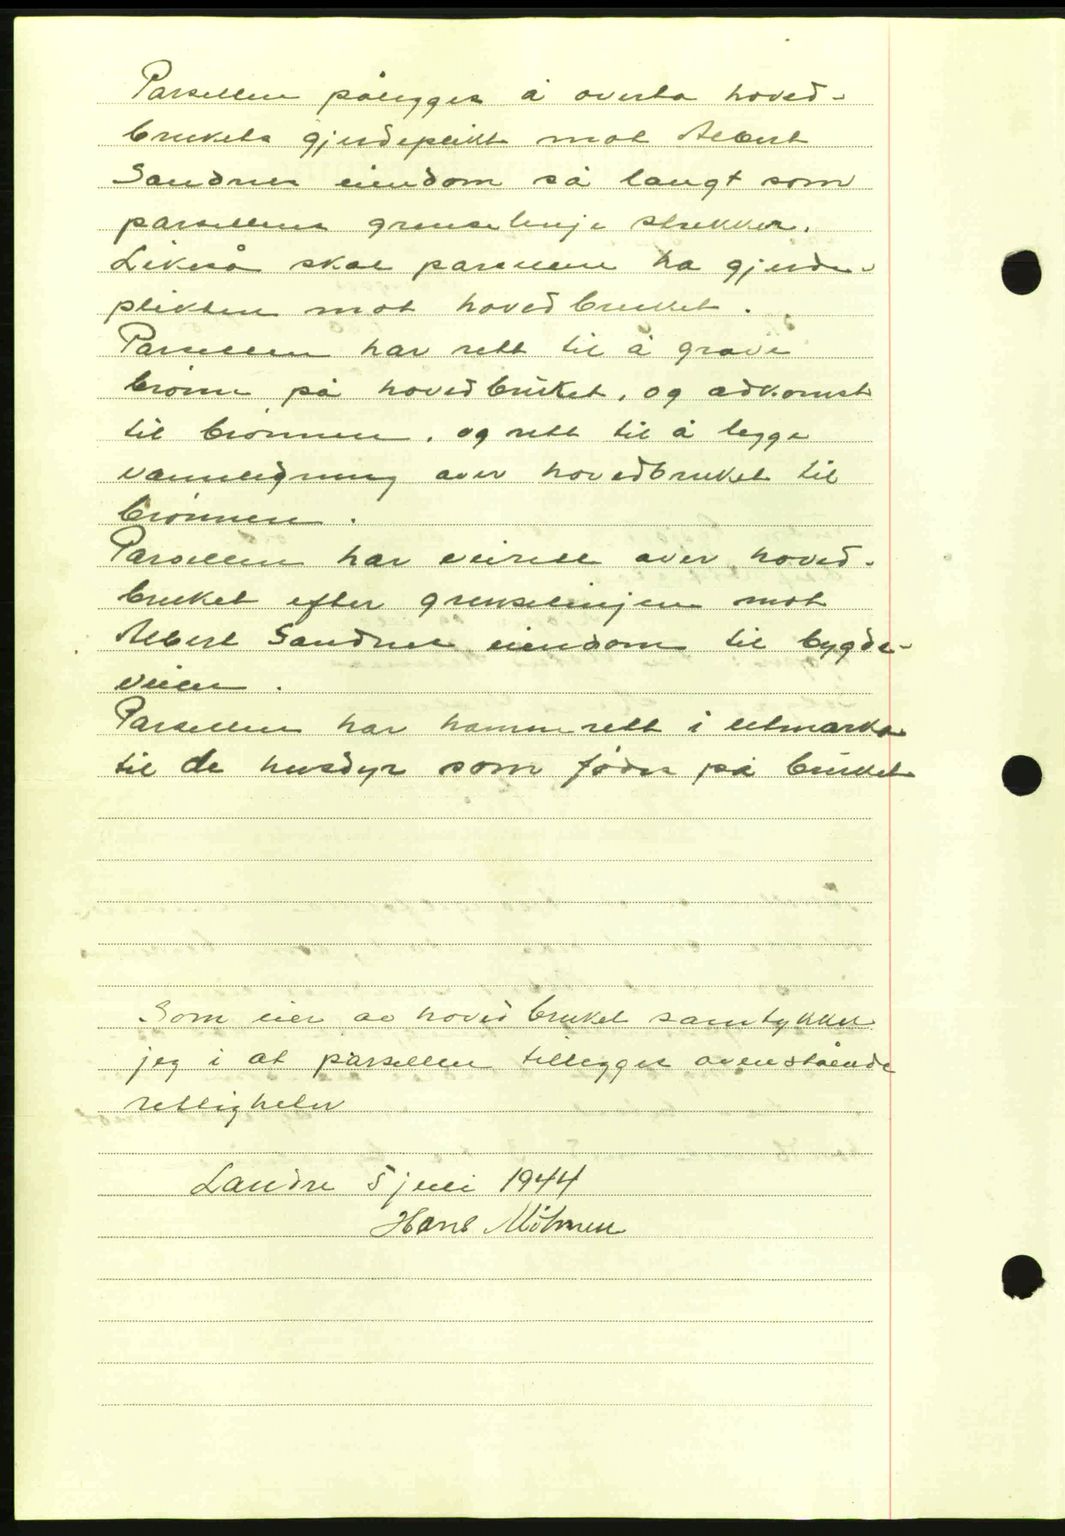 Parsellen pålegges å overta hoved-
brukets gjerdeplikt mot Albert
Sandnes eiendom så langt som
parsellens grenselinje strekker.
Likeså skal parsellen ha gjerde-
plikten mot hovedbruket.
Parsellen har rett til å grave
brønn på hovedbruket, og adkomst
til brønnen, og rett til å legge
vannledning over hovedbruket til
brønnen.
Parsellen har veirett over hoved-
bruket efter grenselinjen mot
Albert Sandnes eiendom til bygde-
veien.
Parsellen har hamnerett i utmarka
til de husdyr som födes på bruket
Som eier av hovedbruket samtykker
jeg i at parsellen tillegges ovenstående
rettigheter
5 juli 1944
Hans